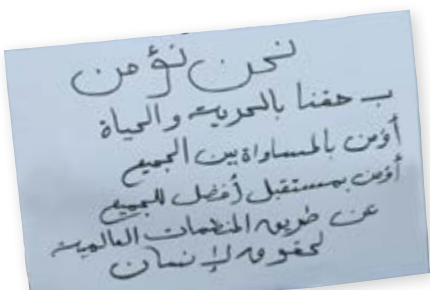 نحن نؤمن
ب حقنا بالحرية و الحياة
أؤمن بالمساواة بين الجميع
أؤمن بمستقبل أفضل للجميع
عن طريق المنظمات العالمية
لحقوق الإنسان